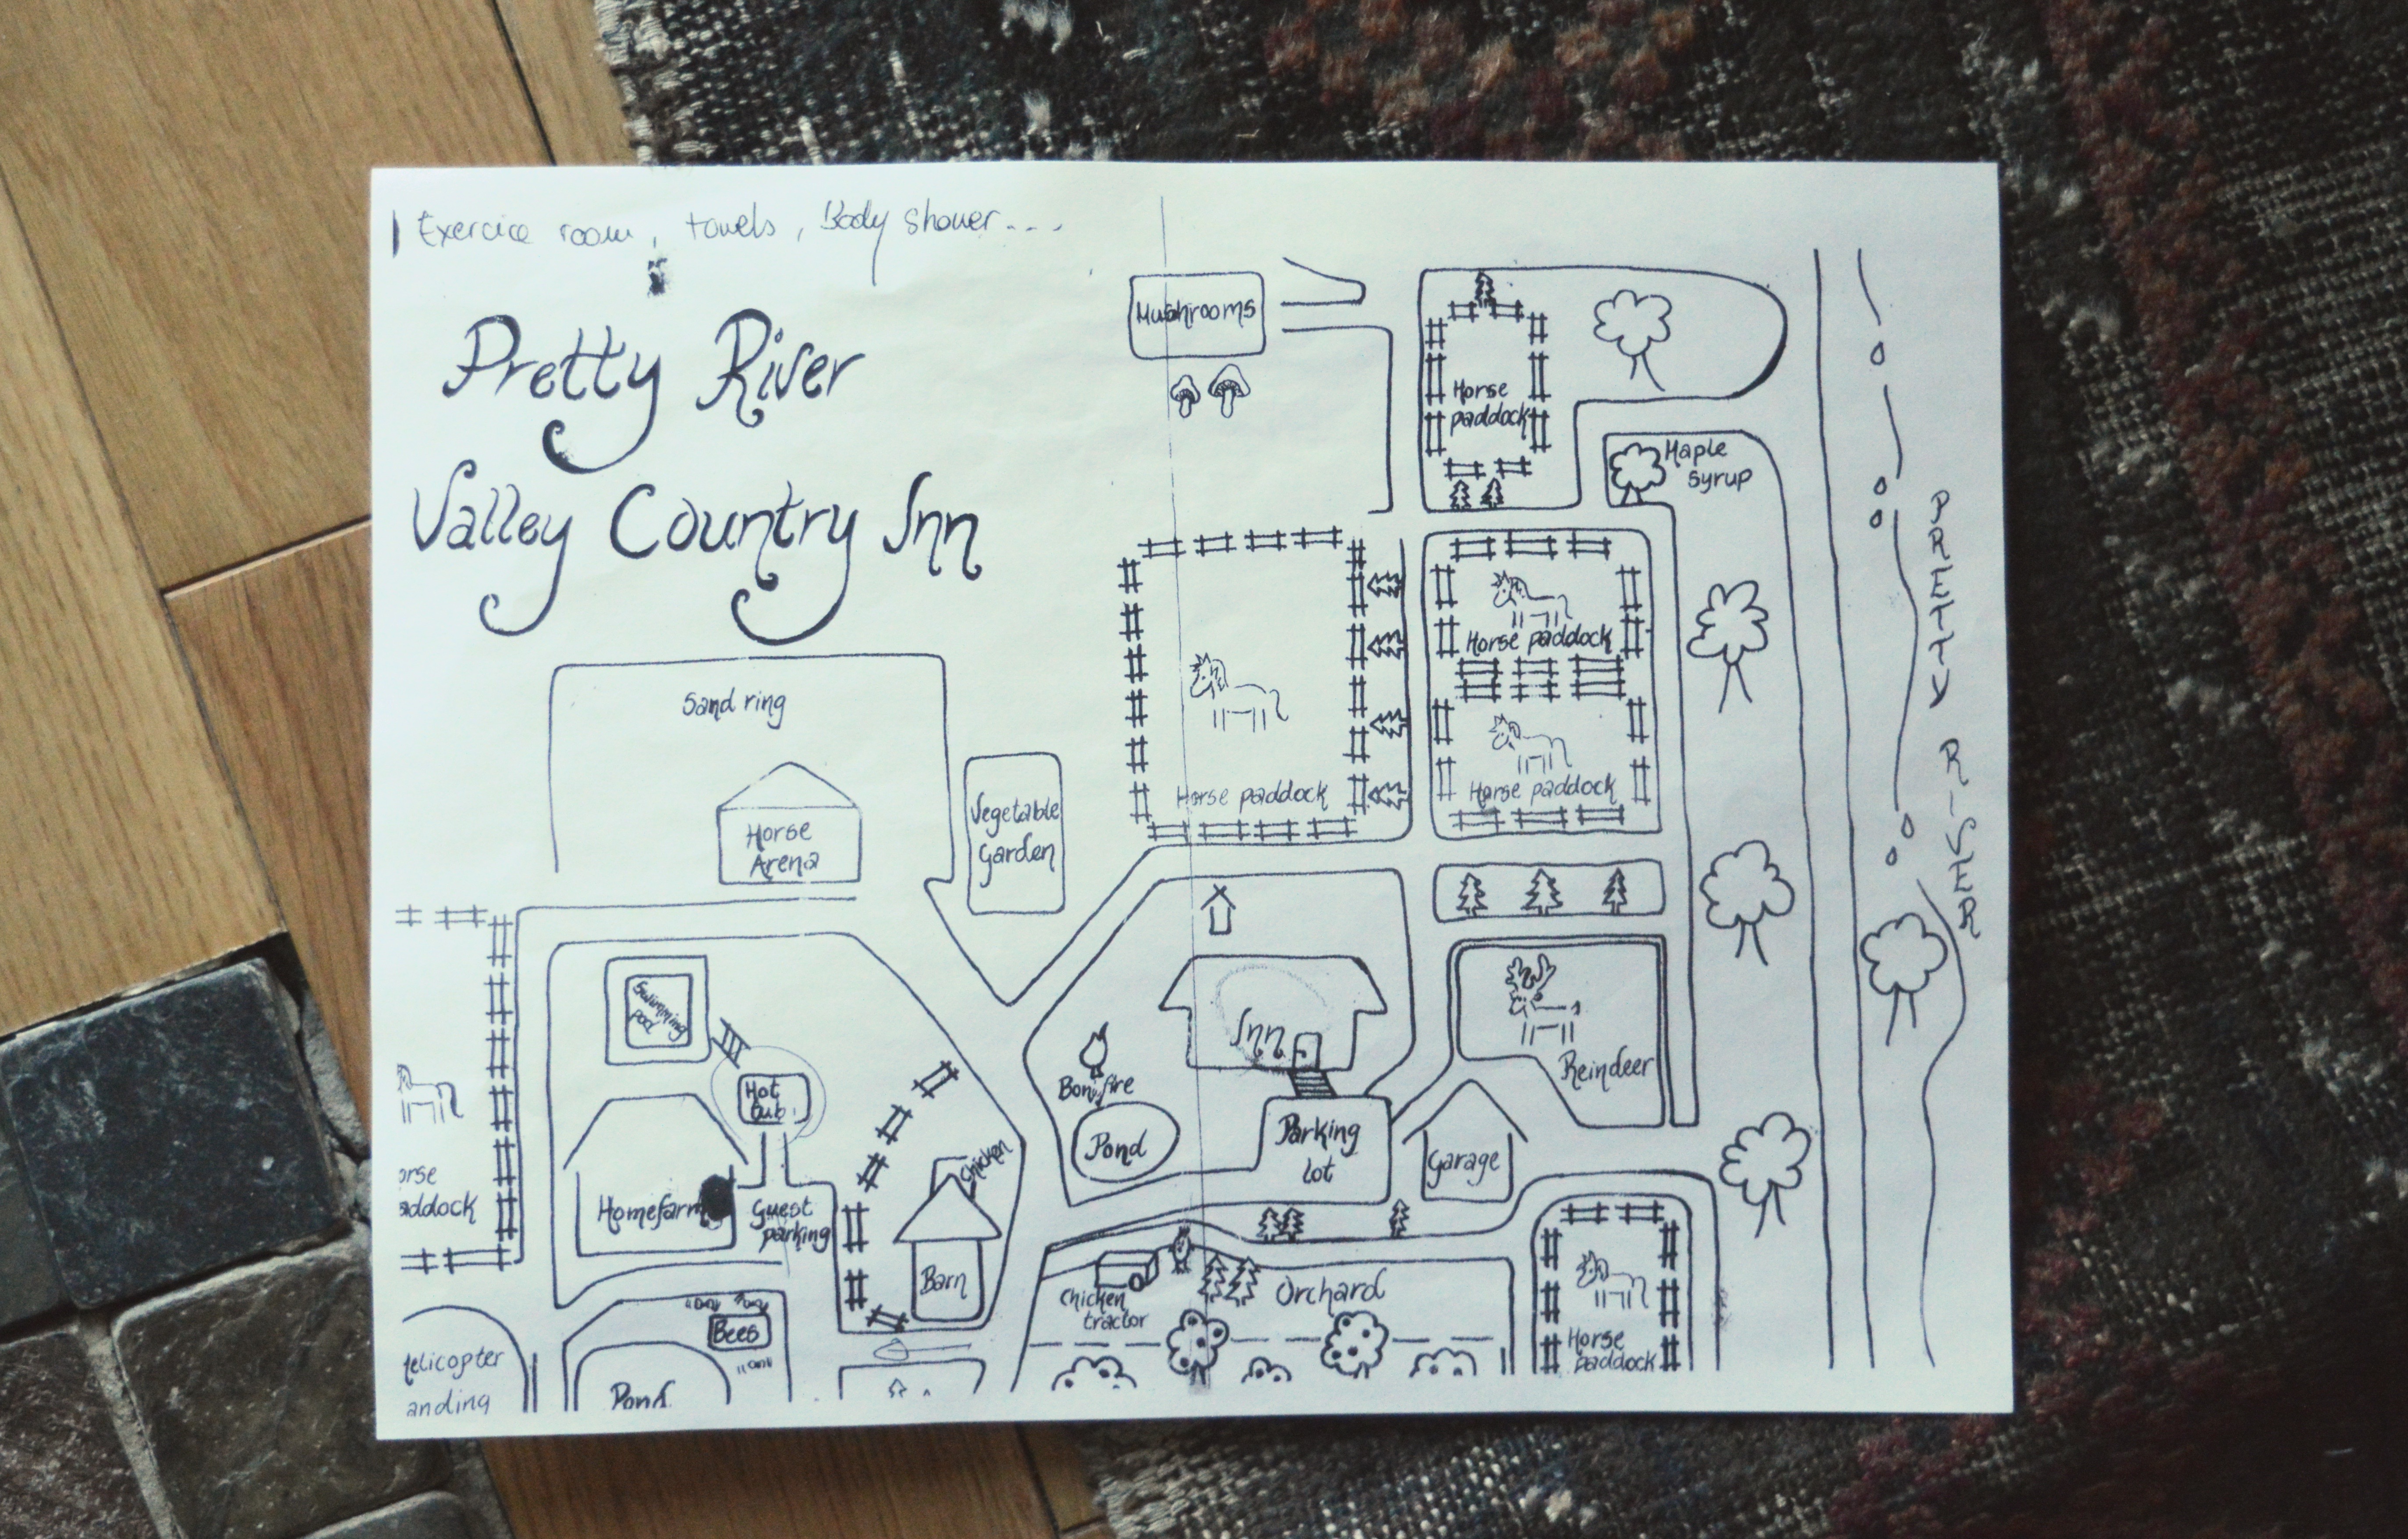 Exercice room, towels, Body shower....
Pretty River
Valley Country Inn
Mushrooms
Horse
paddock
Maple
Syrup
PRETTY RIVER
Horse paddock
Horse paddock
Horse paddock
Sand ring
Horse
Arena
Vegetable
Garden
Swimming
pool
Hot
tub
Inn
Bonfire
Pond
Parking
lot
Reindeer
Garage
orse
addock
Homefarm
Guest
parking
Chicken
Barn
Chicken
tractor
Orchard
Horse
paddock
Bees
Helicopter
anding
Pond